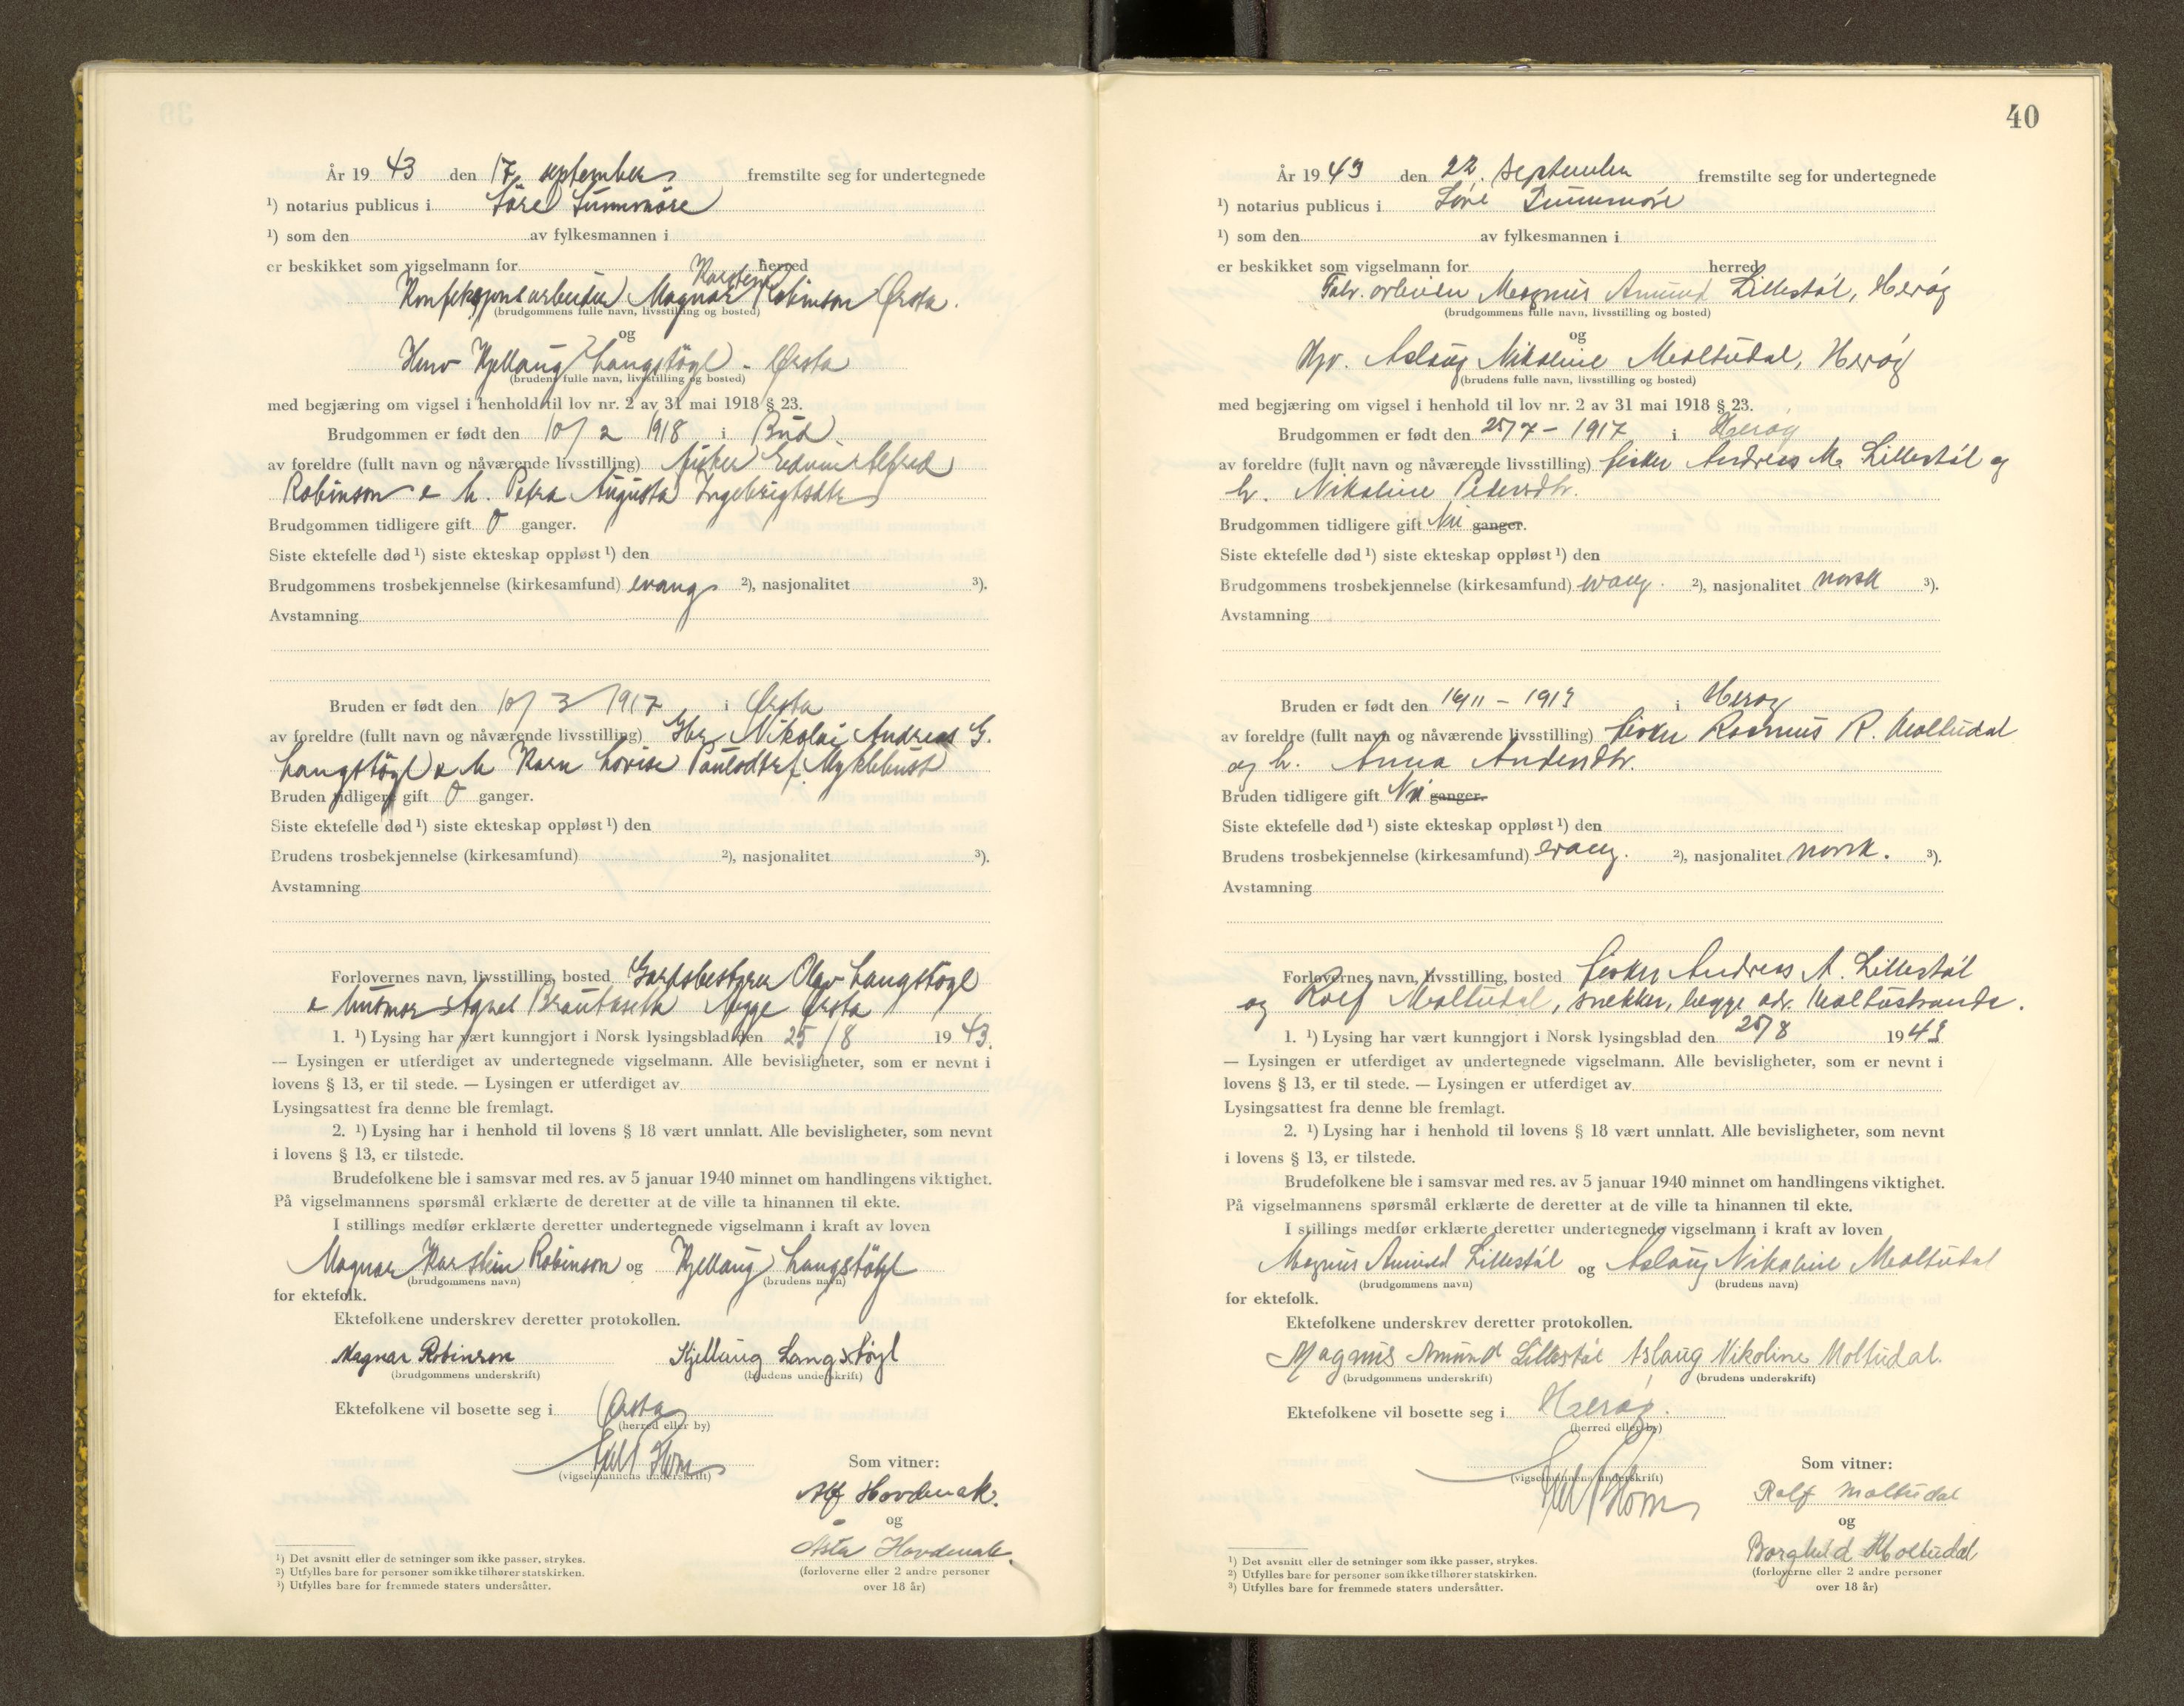 År 19 43 den 17. september fremstilte seg for undertegnede
¹) notarius publicus i Söre Sunnmöre
¹) som den av fylkesmannen i
er beskikket som vigselmann for herred
Karstein
Konfeksjonsarbeider Magnar Robinson Ørsta.
(brudgommens fulle navn, livsstilling og bosted)
og
Kjellaug Langstöyl - Ørsta
(brudens fulle navn, livsstilling og bosted)
med begjæring om vigsel i henhold til lov nr. 2 av 31 mai 1918 § 23.
Brudgommen er født den 10/2 1918 i Bud
av foreldre (fullt navn og nåværende livsstilling) fisker Edvin Alfred
Robinson o h. Petra Augusta Ingebrigtsdtr
Brudgommen tidligere gift 0 ganger.
Siste ektefelle død ¹) siste ekteskap oppløst ¹) den
Brudgommens trosbekjennelse (kirkesamfund) evang ²), nasjonalitet ³).
Avstamning
Bruden er født den 10/3 1917 i Ørsta
av foreldre (fullt navn og nåværende livsstilling) Gbr. Nikolai Andreas G.
Langstöyl o h Karn Lovise Paulsdtr f. Myklebust
Bruden tidligere gift 0 ganger.
Siste ektefelle død ¹) siste ekteskap oppløst ¹) den
Brudens trosbekjennelse (kirkesamfund) ²), nasjonalitet ³).
Avstamning
Forlovernes navn, livsstilling, bosted Gardsbestyrer Olav Langstöyl
o husmor Agnel Brautaseth begge Ørsta
1. ¹) Lysing har vært kunngjort i Norsk lysingsblad den 25/8 19 43.
— Lysingen er utferdiget av undertegnede vigselmann. Alle bevisligheter, som er nevnt i
lovens § 13, er til stede. — Lysingen er utferdiget av
Lysingsattest fra denne ble fremlagt.
2. ¹) Lysing har i henhold til lovens § 18 vært unnlatt. Alle bevisligheter, som nevnt
i lovens § 13, er tilstede.
Brudefolkene ble i samsvar med res. av 5 januar 1940 minnet om handlingens viktighet.
På vigselmannens spørsmål erklærte de deretter at de ville ta hinannen til ekte.
I stillings medfør erklærte deretter undertegnede vigselmann i kraft av loven
Magnar Karstein Robinson og Kjellaug Langstöyl
(brudgommens navn) (brudens navn)
for ektefolk.
Ektefolkene underskrev deretter protokollen.
Magnar Robinson Kjellaug Langstöyl
(brudgommens underskrift) (brudens underskrift)
Ektefolkene vil bosette seg i Ørsta
(herred eller by)
(vigselmannens underskrift)
Som vitner:
Alf Hovdenak.
og
Asta Hovdenak.
(forloverne eller 2 andre personer
over 18 år)
¹) Det avsnitt eller de setninger som ikke passer, strykes.
²) Utfylles bare for personer som ikke tilhører statskirken.
³) Utfylles bare for fremmede staters undersåtter.
40
År 19 43 den 22. september fremstilte seg for undertegnede
¹) notarius publicus i Söre Sunnmöre
¹) som den av fylkesmannen i
er beskikket som vigselmann for herred
Fabr. arbeider Magnus Amund Lillestöl, Heröy
(brudgommens fulle navn, livsstilling og bosted)
og
Aslaug Nikoline Moltudal, Heröy
(brudens fulle navn, livsstilling og bosted)
med begjæring om vigsel i henhold til lov nr. 2 av 31 mai 1918 § 23.
Brudgommen er født den 25/7 - 1917 i Heröy
av foreldre (fullt navn og nåværende livsstilling) fisker Andreas M. Lillestöl og
h. Nikoline Pedersdtr.
Brudgommen tidligere gift Nei ganger.
Siste ektefelle død ¹) siste ekteskap oppløst ¹) den
Brudgommens trosbekjennelse (kirkesamfund) evang. ²), nasjonalitet norsk ³).
Avstamning
Bruden er født den 16/11 - 1913 i Heröy
av foreldre (fullt navn og nåværende livsstilling) fisker Rasmus R. Moltudal
og h. Anna Andersdtr.
Bruden tidligere gift Nei ganger.
Siste ektefelle død ¹) siste ekteskap oppløst ¹) den
Brudens trosbekjennelse (kirkesamfund) evang. ²), nasjonalitet norsk. ³).
Avstamning
Forlovernes navn, livsstilling, bosted fisker Andreas A. Lillestöl
og Rolf Moltudal, snekker, begge adr. Moltustranda.
1. ¹) Lysing har vært kunngjort i Norsk lysingsblad den 25/8 19 43
— Lysingen er utferdiget av undertegnede vigselmann. Alle bevisligheter, som er nevnt i
lovens § 13, er til stede. — Lysingen er utferdiget av
Lysingsattest fra denne ble fremlagt.
2. ¹) Lysing har i henhold til lovens § 18 vært unnlatt. Alle bevisligheter, som nevnt
i lovens § 13, er tilstede.
Brudefolkene ble i samsvar med res. av 5 januar 1940 minnet om handlingens viktighet.
På vigselmannens spørsmål erklærte de deretter at de ville ta hinannen til ekte.
I stillings medfør erklærte deretter undertegnede vigselmann i kraft av loven
Magnus Amund Lillestöl og Aslaug Nikoline Moltudal
(brudgommens navn) (brudens navn)
for ektefolk.
Ektefolkene underskrev deretter protokollen.
Magnus Amund Lillestöl Aslaug Nikoline Moltudal.
(brudgommens underskrift) (brudens underskrift)
Ektefolkene vil bosette seg i Heröy.
(herred eller by)
(vigselmannens underskrift)
Som vitner:
Rolf Moltudal
og
Borghild Moltudal
(forloverne eller 2 andre personer
over 18 år)
¹) Det avsnitt eller de setninger som ikke passer, strykes.
²) Utfylles bare for personer som ikke tilhører statskirken.
³) Utfylles bare for fremmede staters undersåtter.